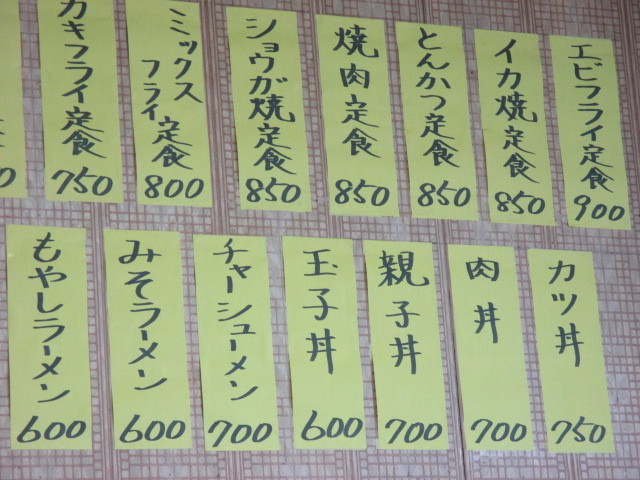 エビフライ定食
900
イカ焼定食
850
とんかつ定食
850
焼肉定食
850
ショウガ焼定食
850
ミックス
フライ定食
800
カキフライ定食
750
カツ丼
750
肉丼
700
親子丼
700
玉子丼
600
チャーシューメン
700
みそラーメン
600
もやしラーメン
600